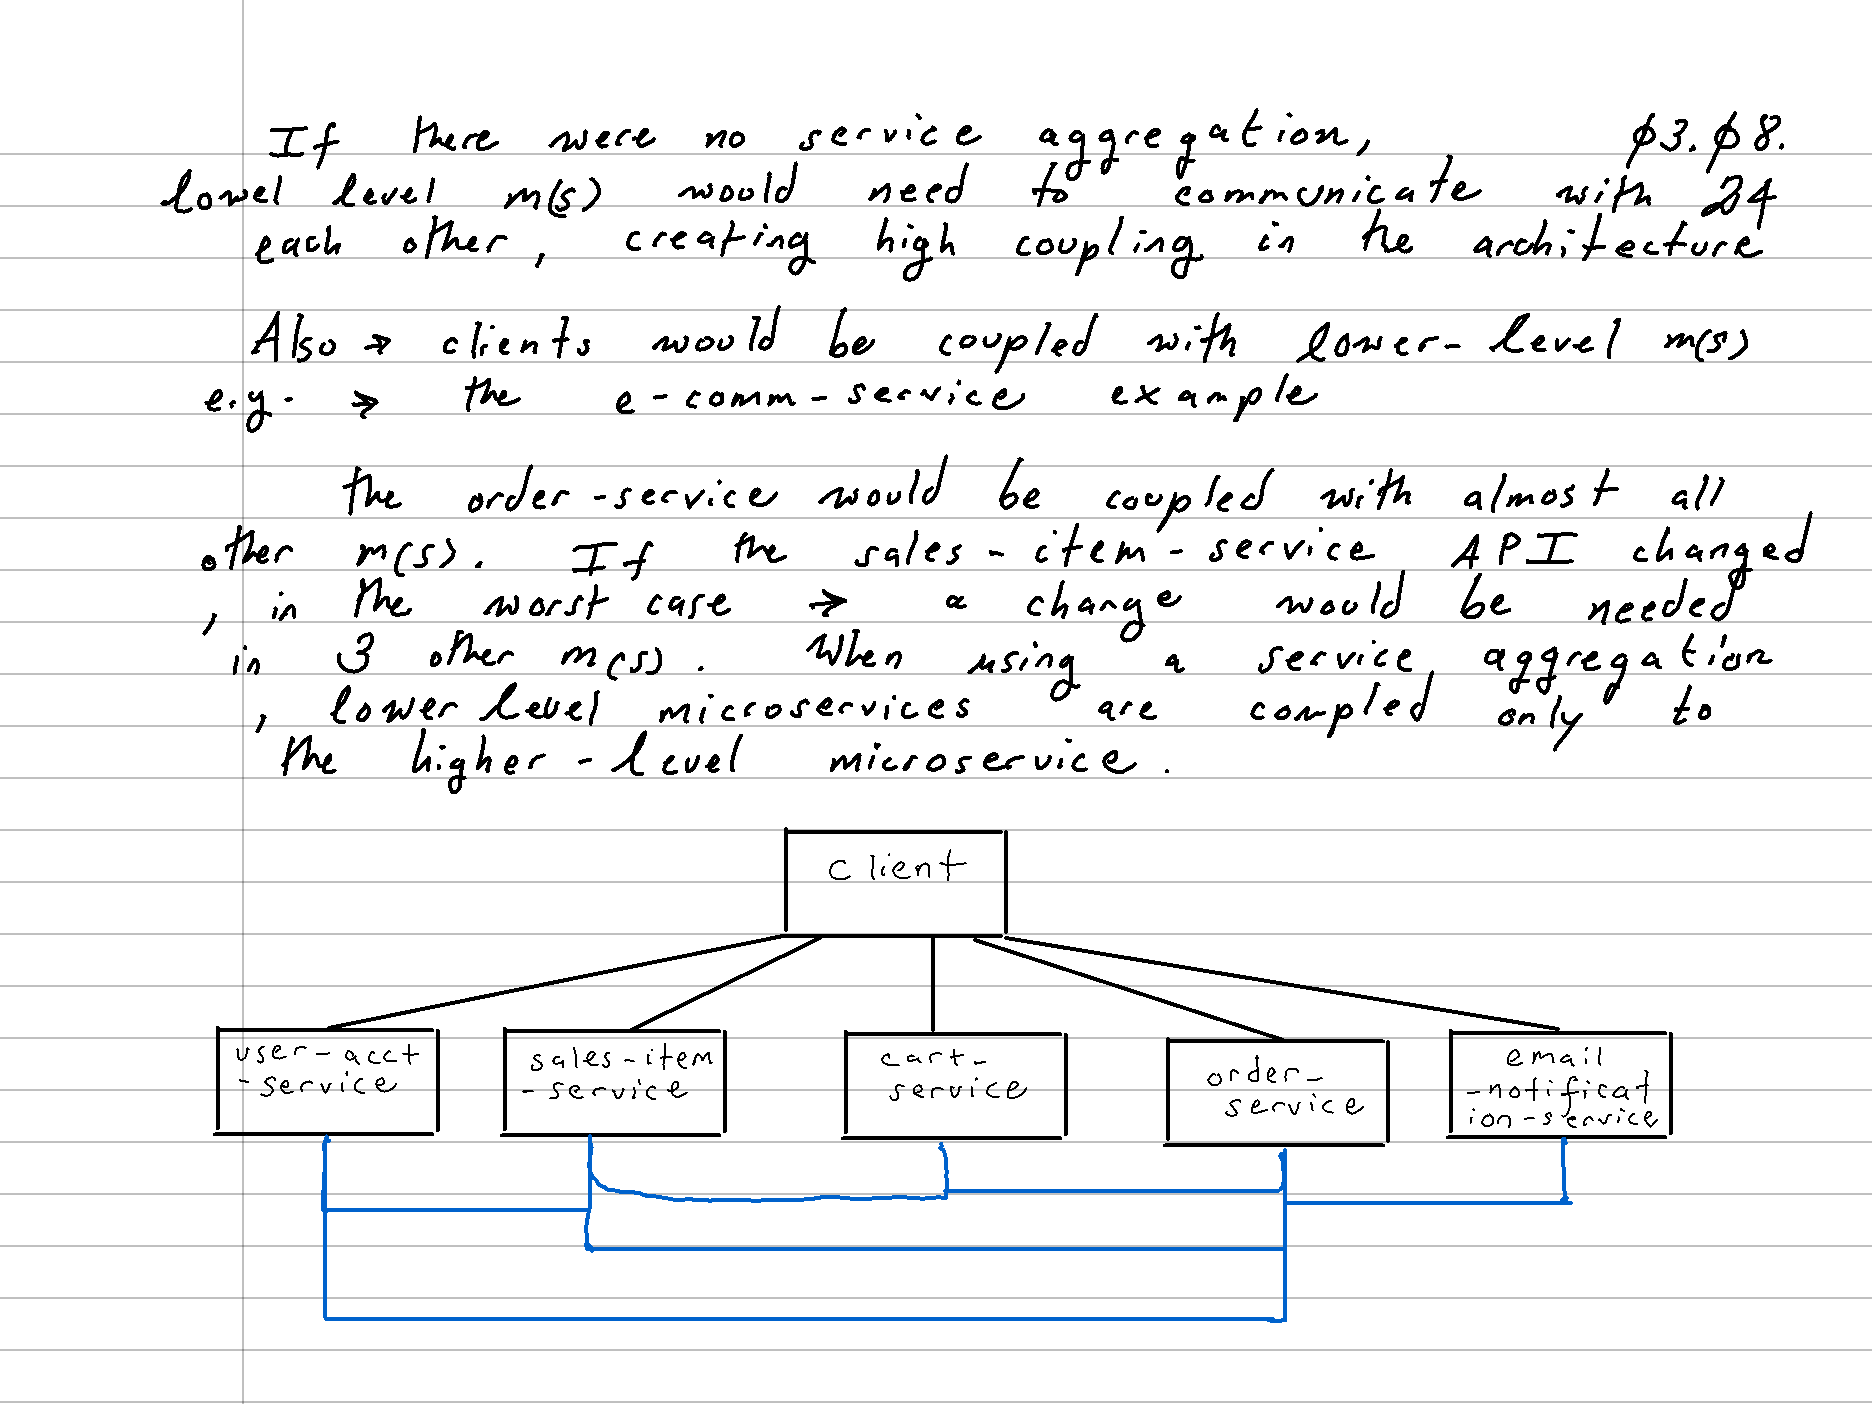 If there were no service aggregation, ø3.ø8.
lowel level m(s) would need to communicate with 24
each other, creating high coupling in the architecture
Also → clients would be coupled with lower-level m(s)
e.g. → the e-comm-service example
the order-service would be coupled with almost all
other m(s). If the sales-item-service API changed
, in the worst case → a change would be needed
in 3 other m(s). When using a service aggregation
, lower level microservices are coupled only to
the higher-level microservice.
client
user-acct
-service
sales-item
-service
cart-
service
order-
service
email
-notificat
ion-service